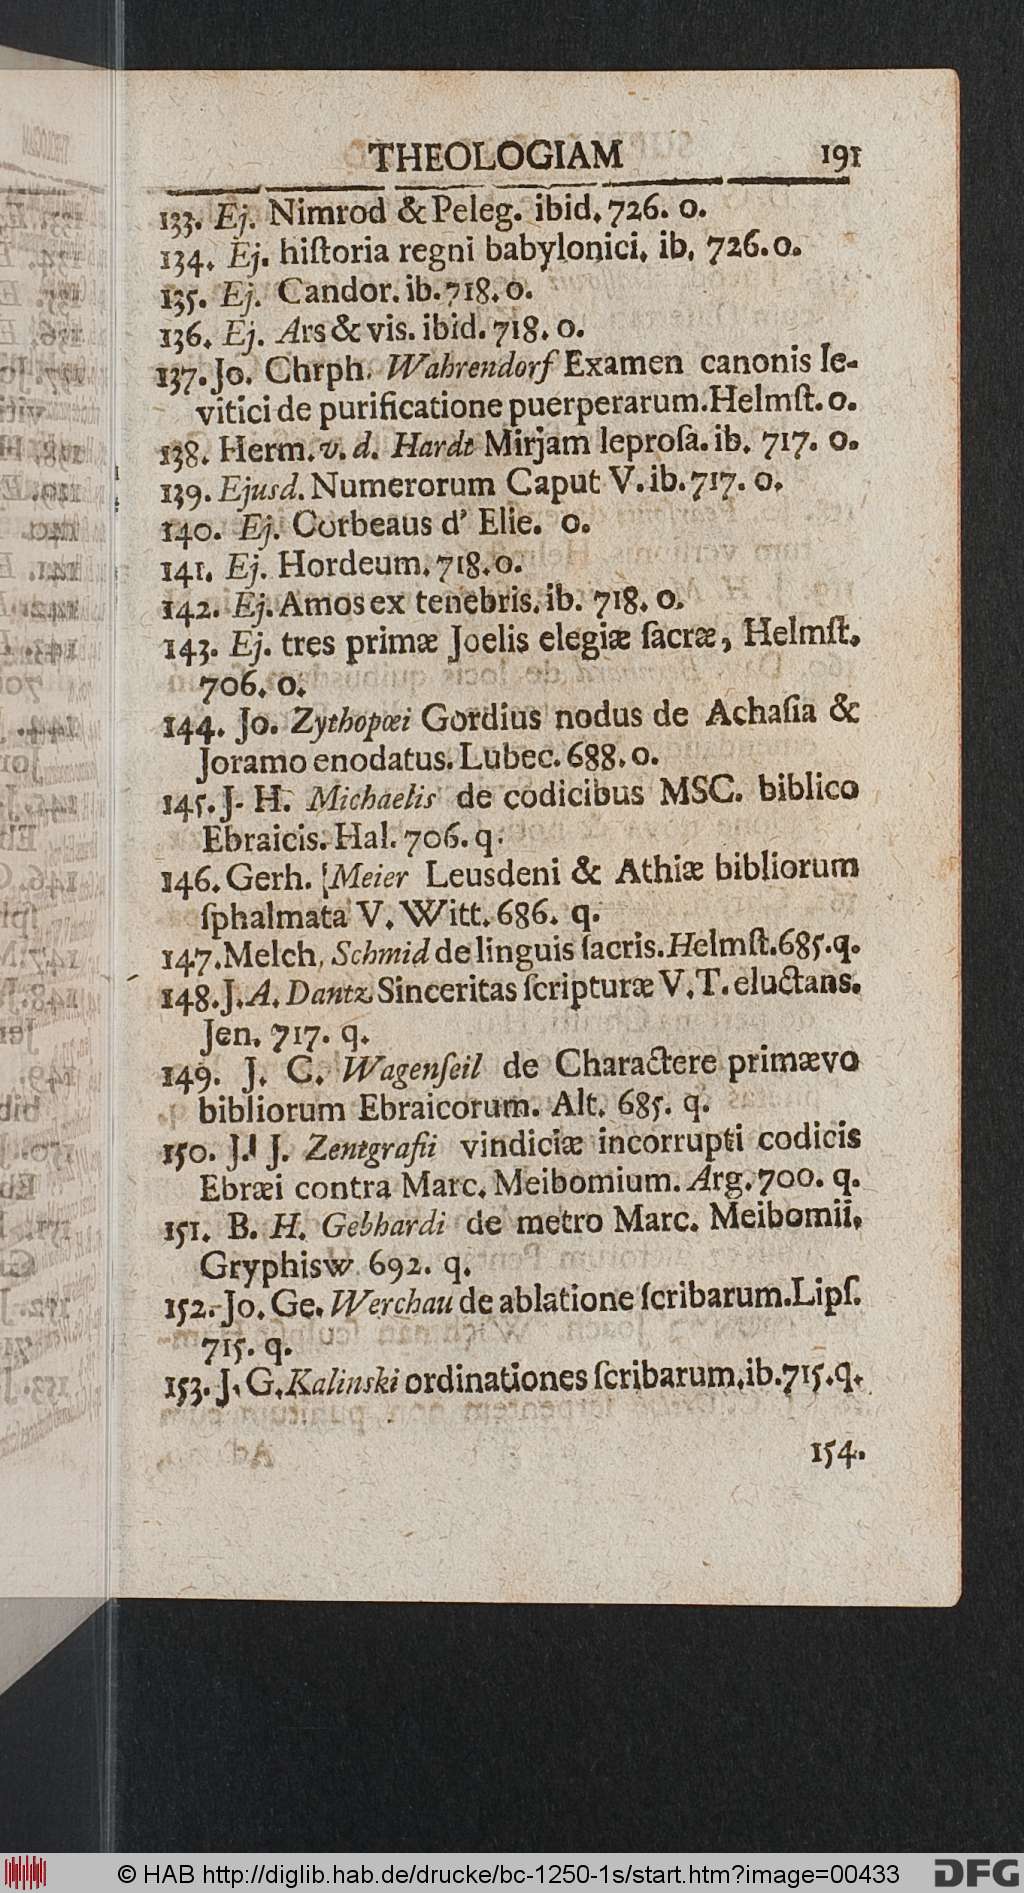 THEOLOGIAM 191
133. Ej. Nimrod & Peleg. ibid. 726. o.
134. Ej. hiſtoria regni babylonici. ib. 726. o.
135. Ej. Candor. ib. 718. o.
136. Ej. Ars & vis. ibid. 718. o.
137. Jo. Chrph. Wahrendorf Examen canonis le-
vitici de purificatione puerperarum. Helmſt. o.
138. Herm. v. d. Hardt Mirjam leproſa. ib. 717. o.
139. Ejusd. Numerorum Caput V. ib. 717. o.
140. Ej. Corbeaus d' Elie. o.
141. Ej. Hordeum. 718. o.
142. Ej. Amos ex tenebris. ib. 718. o.
143. Ej. tres primæ Joelis elegiæ ſacræ, Helmſt.
706. o.
144. Jo. Zythopœi Gordius nodus de Achaſia &
Joramo enodatus. Lubec. 688. o.
145. J. H. Michaelis de codicibus MSC. biblico
Ebraicis. Hal. 706. q.
146. Gerh. Meier Leusdeni & Athiæ bibliorum
ſphalmata V. Witt. 686. q.
147. Melch. Schmid de linguis ſacris. Helmſt. 685. q.
148. J. A. Dantz Sinceritas ſcripturæ V. T. eluctans.
Jen. 717. q.
149. J. C. Wagenſeil de Charactere primævo
bibliorum Ebraicorum. Alt. 685. q.
150. J. J. Zentgrafii vindiciæ incorrupti codicis
Ebræi contra Marc. Meibomium. Arg. 700. q.
151. B. H. Gebhardi de metro Marc. Meibomii.
Gryphisw. 692. q.
152. Jo. Ge. Werchau de ablatione ſcribarum. Lipſ.
715. q.
153. J. G. Kalinski ordinationes ſcribarum. ib. 715. q.
154.
© HAB http://diglib.hab.de/drucke/bc-1250-1s/start.htm?image=00433 DFG